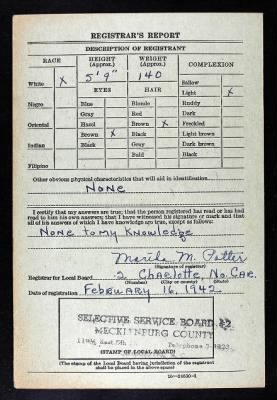 REGISTRAR'S REPORT
DESCRIPTION OF REGISTRANT
RACE HEIGHT (Approx.) WEIGHT (Approx.) COMPLEXION
White X 5' 9" 140 Sallow
EYES HAIR Light X
Negro Blue Blonde Ruddy
Gray Red Dark
Oriental Hazel Brown X Freckled
Brown X Black Light brown
Indian Black Gray Dark brown
Bald Black
Filipino
Other obvious physical characteristics that will aid in identification
None
I certify that my answers are true; that the person registered has read or has had
read to him his own answers; that I have witnessed his signature or mark and that
all of his answers of which I have knowledge are true, except as follows:
None to my Knowledge
M. Potter
(Signature of registrar)
Registrar for Local Board 2 Charlotte, No. Car.
(Number) (City or county) (State)
Date of registration February 16, 1942
SELECTIVE SERVICE BOARD #2
MECKLENBURG COUNTY
Telephone
(STAMP OF LOCAL BOARD)
(The stamp of the Local Board having jurisdiction of the registrant
shall be placed in the above space)